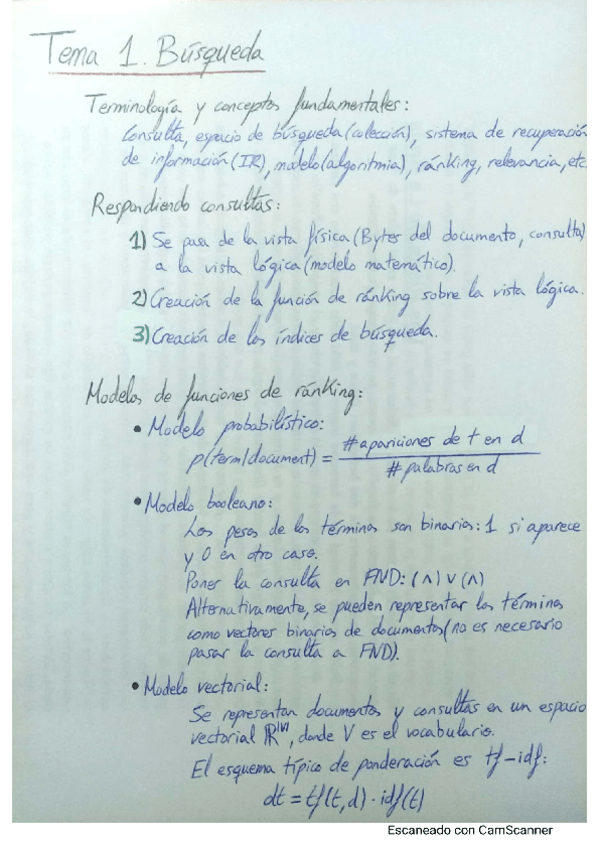 Tema 1. Búsqueda
Terminología y conceptos fundamentales:
Consulta, espacio de búsqueda (colección), sistema de recuperación
de información (IR), modelo (algoritmia), ránking, relevancia, etc.
Respondiendo consultas:
1) Se pasa de la vista física (Bytes del documento, consulta)
a la vista lógica (modelo matemático).
2) Creación de la función de ránking sobre la vista lógica.
3) Creación de los índices de búsqueda.
Modelos de funciones de ránking:
• Modelo probabilístico:
p(term|document) = # apariciones de t en d
# palabras en d
• Modelo booleano:
Los pesos de los términos son binarios: 1 si aparece
y 0 en otro caso.
Poner la consulta en FND: (∧) ∨ (∧)
Alternativamente, se pueden representar los términos
como vectores binarios de documentos (no es necesario
pasar la consulta a FND).
• Modelo vectorial:
Se representan documentos y consultas en un espacio
vectorial ℝ^|V|, donde V es el vocabulario.
El esquema típico de ponderación es tf-idf:
dt = tf(t,d) · idf(t)
Escaneado con CamScanner